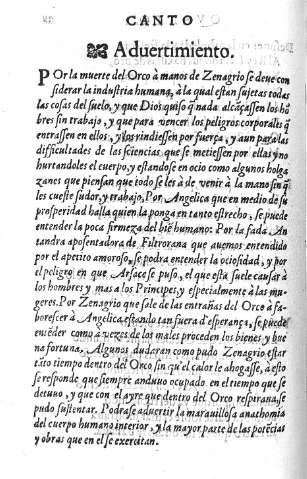 CANTO
Aduertimiento.
POr la muerte del Orco à manos de Zenagrio se deue con
siderar la industria humana, à la qual estan sujetas todas
las cosas del suelo, y que Dios quiso q̃ nada alcãçassen los hõ
bres sin trabajo, y que para vencer los peligros corporales
entrassen en ellos, y los rindiessen por fuerça, y aun para las
difficultades de las sciencias que se metiessen por ellas y no
hurtandoles el cuerpo, y estandose en ocio como algunos holga
zanes que piensan que todo se les à de venir à la mano sin q̃
les cueste sudor, y trabajo. Por Angelica que en medio de su
prosperidad halla quien la ponga en tanto estrecho, se puede
entender la poca firmeza del biẽ humano: Por la fada An
tandra aposentadora de Filtrorana que auemos entendido
por el apetito amoroso, se podra entender la ociosidad, y por
el peligro en que Arface se puso, el que esta suele causar à
los hombres y mas a los Principes, y especialmente à las mu
geres. Por Zenagrio que sale de las entrañas del Orco à fa-
borescer à Angelica estando tan fuera d'esperança, se puede
entẽder como à vezes de los males proceden los bienes, y bue
na fortuna, Algunos dudaran como pudo Zenagrio estar
tãto tiempo dentro del Orco sin q̃ el calor le ahogasse, à esto
se responde que siempre anduuo ocupado en el tiempo que se
detuuo, y que con el ayre que dentro del Orco respiraua, se
pudo sustentar. Podrase aduertir la marauillosa anathomia
del cuerpo humano interior, y la mayor parte de las potẽcias
y obras que en el se exercitan.